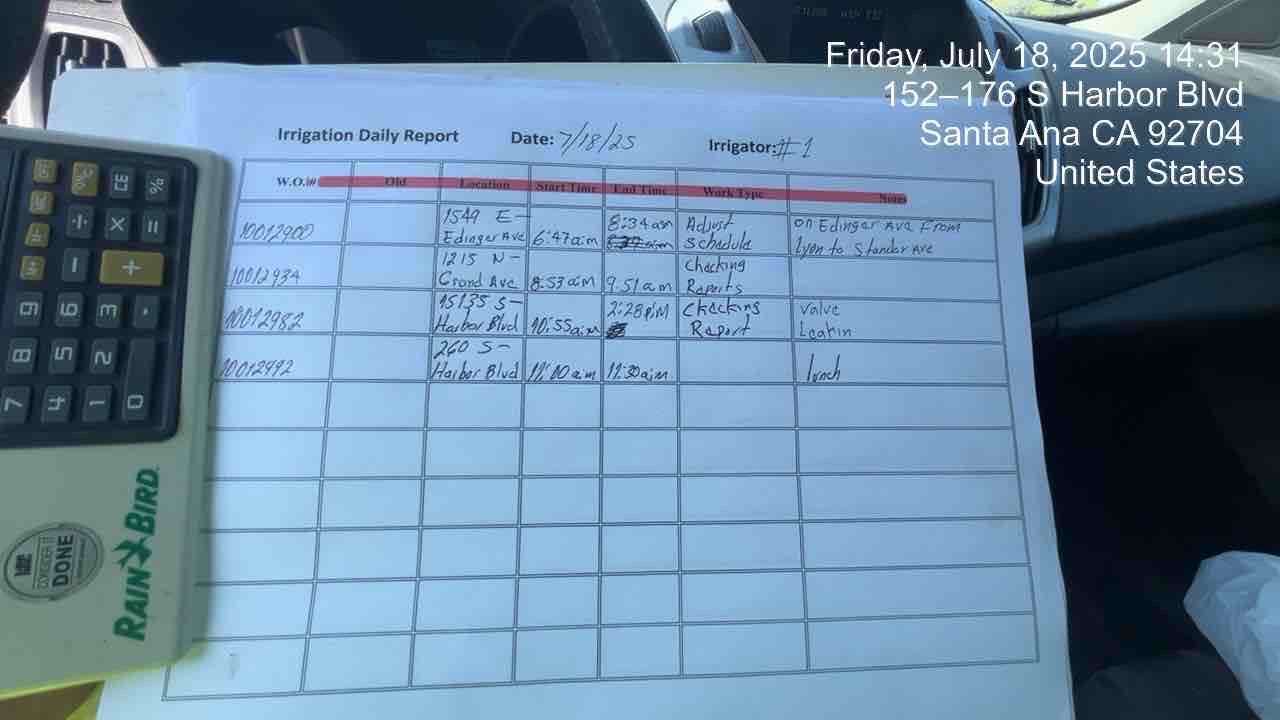 Friday, July 18, 2025 14:31
152–176 S Harbor Blvd
Santa Ana CA 92704
United States
Irrigation Daily Report Date: 7/18/25 Irrigator: #1
W.O.# Old Location Start Time End Time Work Type Notes
1549 E- 8:34am Adjust on Edinger Ave From
10012900 Edinger Ave 6:47a:m schedule Lyon to Standar Ave
1215 N- Checking
10012934 Grand Ave 8:53am 9:51a.m Reports
S- 2:28pm Checking valve
10012982 Harbor Blvd 10:55a:m Report Leakin
260 S-
10012992 Harbor Blvd 11:00a:m 11:30a:m lunch
OFF % CE %
÷ × =
- +
9 6 3 .
8 5 2
7 4 1 0
CONSIDER IT
DONE
RAIN BIRD